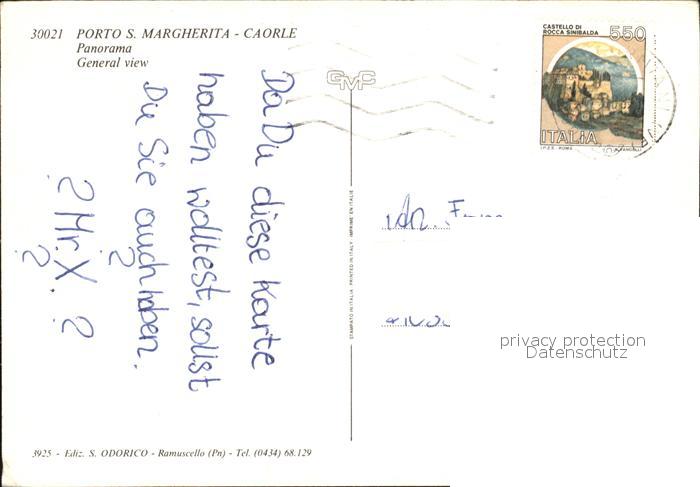 30021 PORTO S. MARGHERITA - CAORLE
Panorama
General view
CASTELLO DI
ROCCA SINIBALDA
550
ITALIA
I.P.Z.S. - ROMA
GMC
Da Du diese Karte
haben wolltest, sollst
Du Sie auch haben.
? Mr. X. ?
? ?
STAMPATO IN ITALIA PRINTED IN ITALY IMPRIME EN ITALIE
An.
privacy protection
Datenschutz
3925 - Ediz. S. ODORICO - Ramuscello (Pn) - Tel. (0434) 68.129